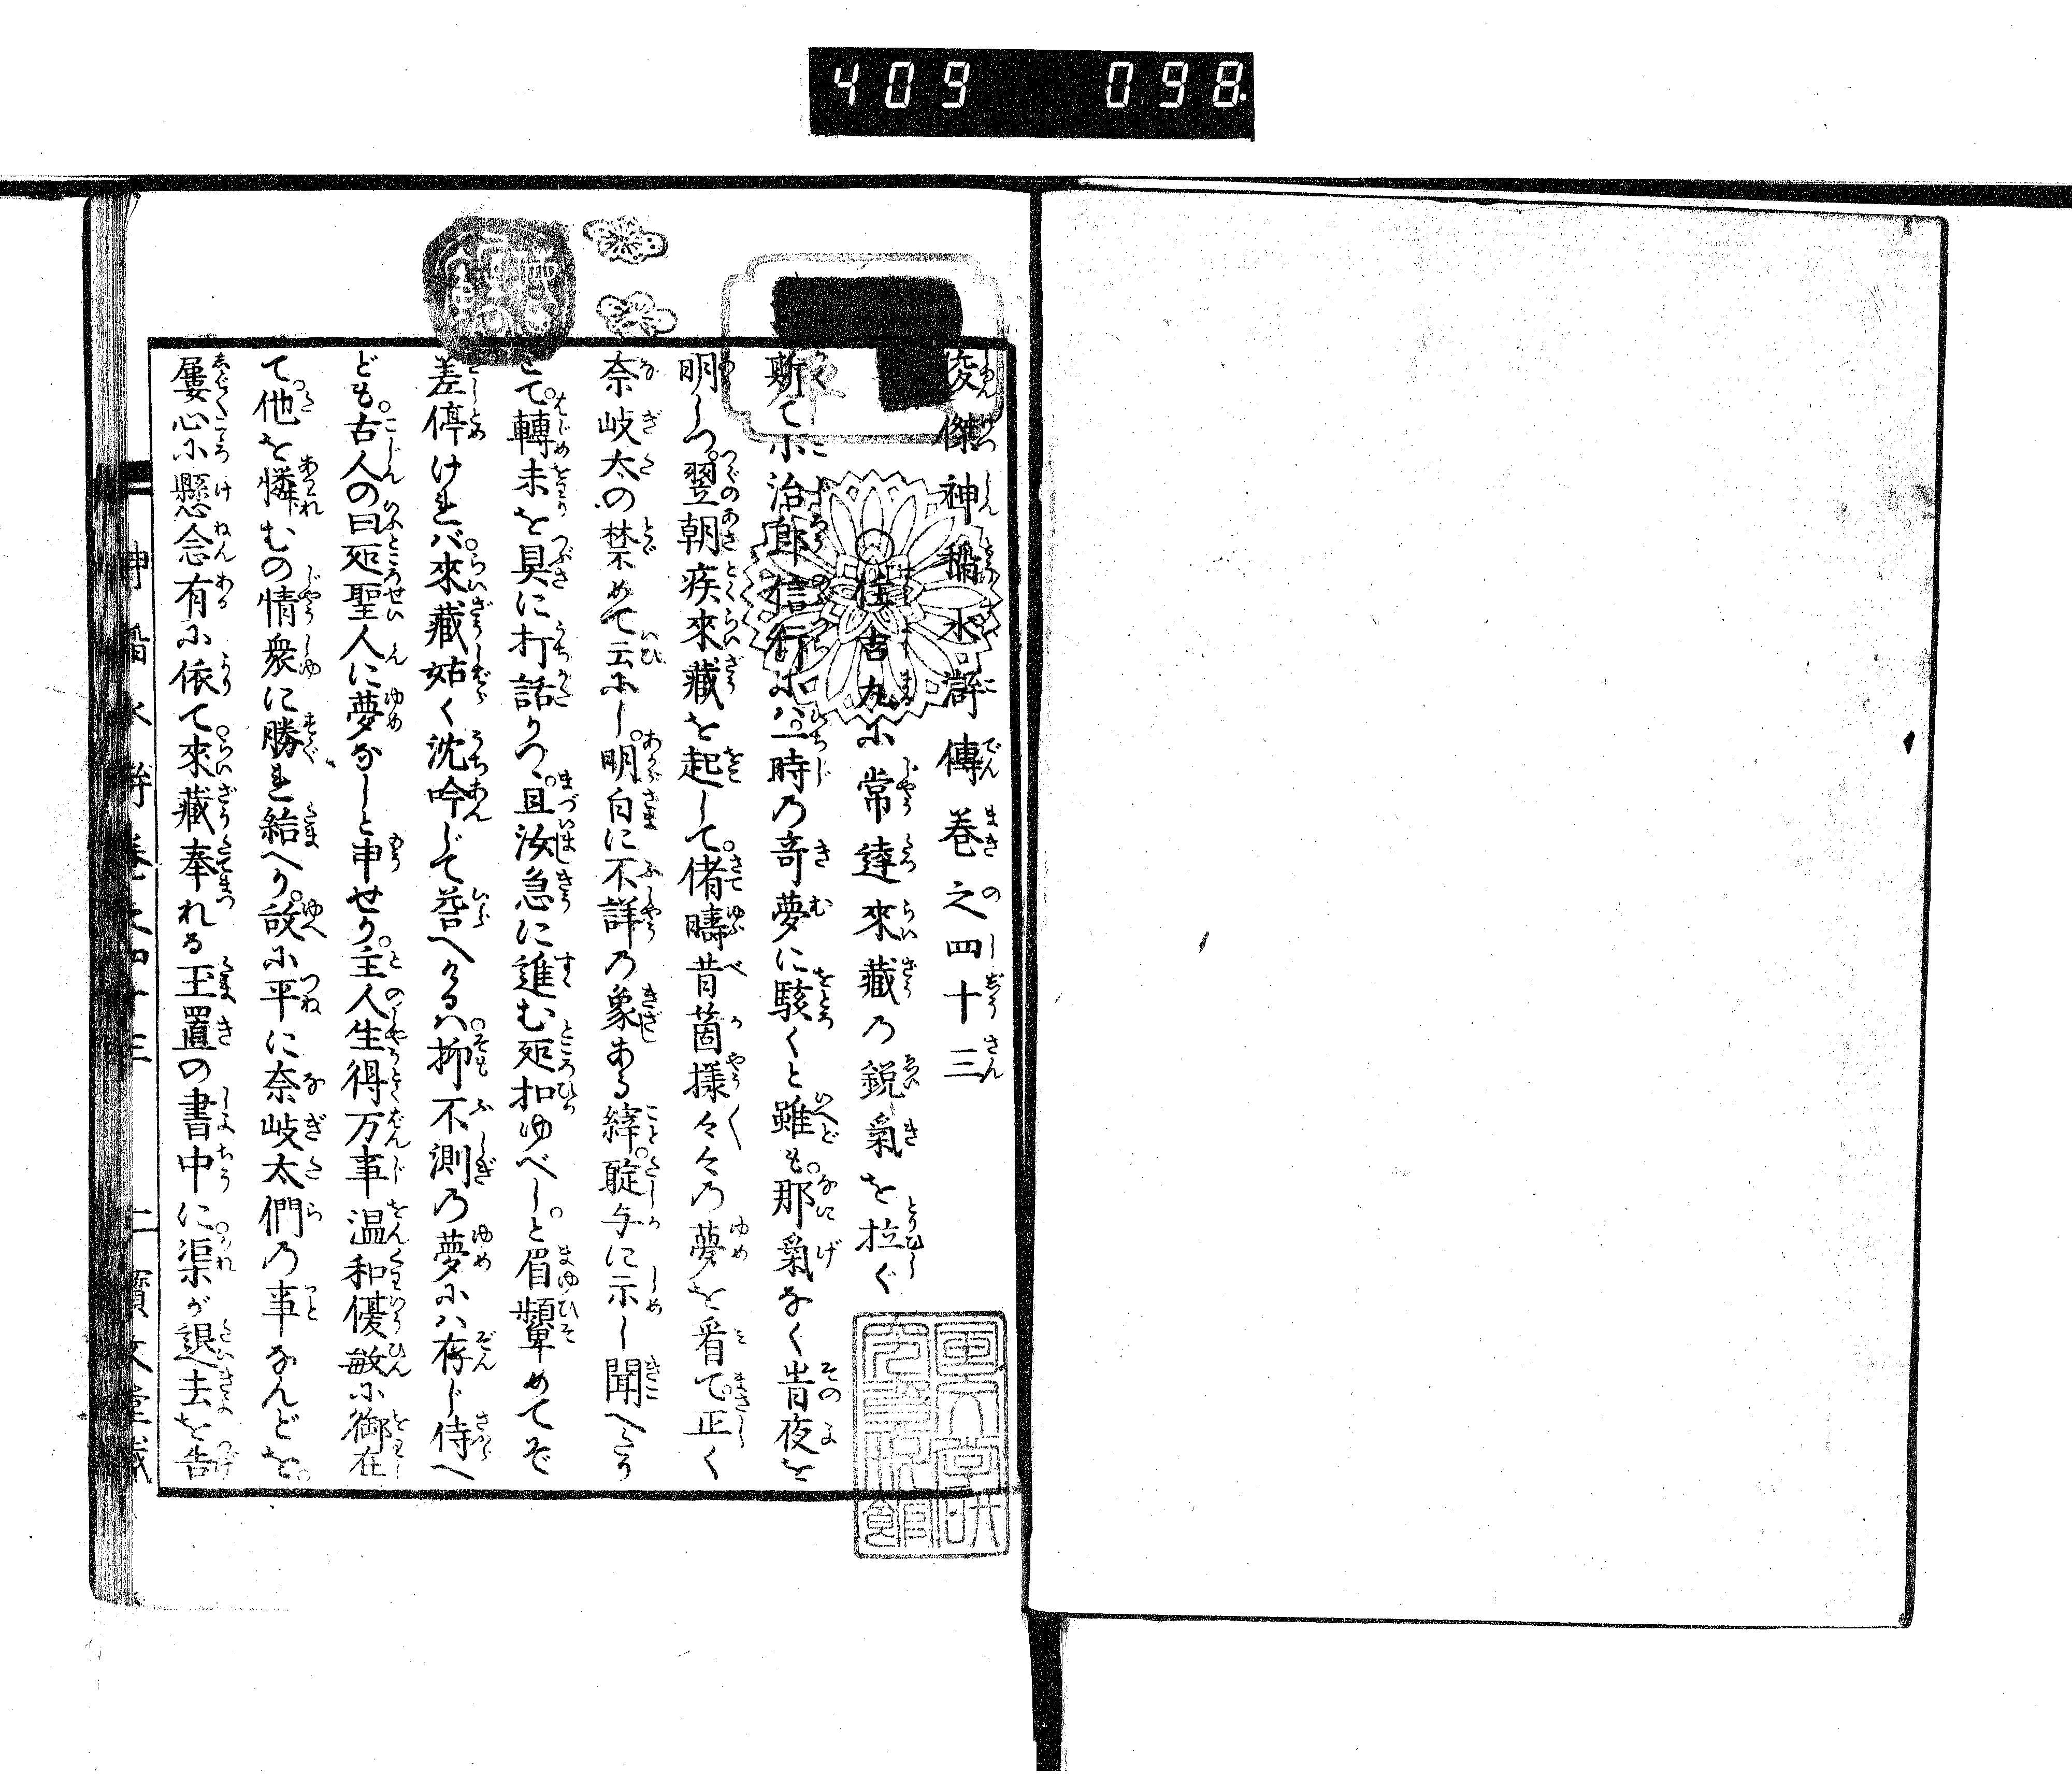 409 098
俊傑神稲水滸傳巻之四十三
住吉丸に常達來藏の鋭氣を拉ぐ
斯て小治郎信行ハ一時の奇夢に駭くと雖も。那氣なく当夜を
明しつ。翌朝疾來藏を起して。偖疇昔箇様々々の夢を看て。正く
奈岐太の禁めて云にし。明白に不詳の象ある縡。聢与に示し聞へたり
とて。轉末を具に打話りつ。且汝急に進む处扣ゆべし。と眉顰めてぞ
差停けれバ。來藏姑く沈吟じて荅へけるハ。抑不測の夢にハ存じ侍へ
ども。古人の曰处聖人に夢なしと申せり。主人生得万事温和優敏に御在
て他を憐むの情衆に勝れ給へり。故に平に奈岐太們の事なんどを。
屢心に懸念有に依て。來藏奉れる玉置の書中に渠が退去を告
神稲水滸巻之四十三 一 寶文堂藏